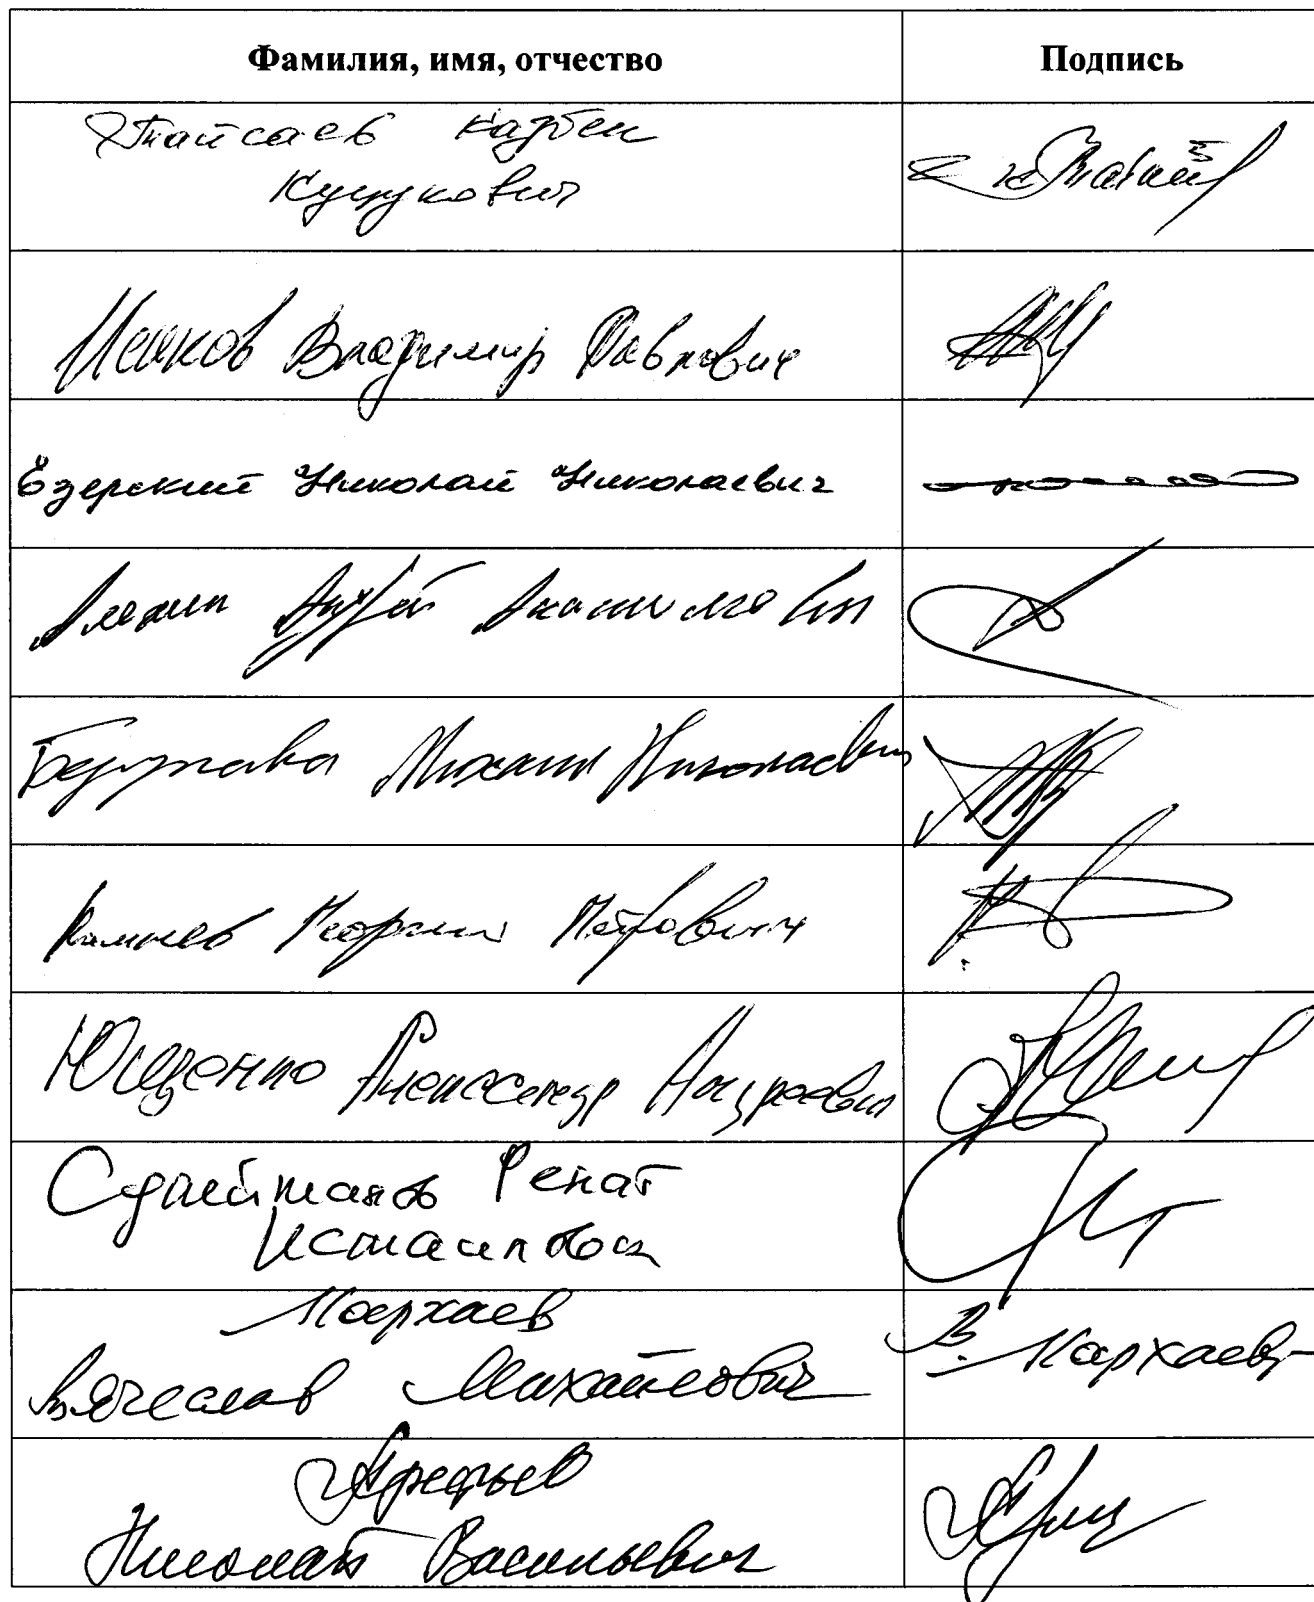 Фамилия, имя, отчество
Подпись
Тайсаев Казбек
Куцукович
Исаков Владимир Павлович
Езерский Николай Николаевич
Алехин Андрей Анатольевич
Берулава Михаил Николаевич
Камнев Георгий Петрович
Ющенко Александр Андреевич
Сулейманов Ренат
Исмаилович
Мархаев
В. Мархаев
Вячеслав Михайлович
Арефьев
Николай Васильевич